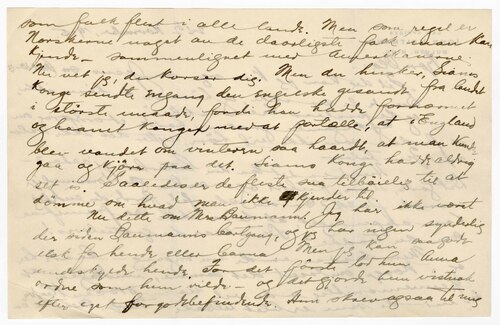 som folk flest i alle lande. Men som regel er
Norskerne noget av de daarligste folk man kan
kjende – sammenlignet med Amerikanerne.
Nu vet jeg, du korser dig. Men du husker, Siams
Konge sendte engang den engelske gesandt fra landet
i største unaade, fordi han hadde fornærmet
og haanet kongen med at fortælle, at i England
blev vandet om vinteren saa haardt, at man kunde
gaa og kjøre paa det. Siams Konge hadde aldrig
set is. Saaledes er de fleste saa tilbøielig til at
dømme om hvad man ikke kjender til.
Nu dette om Mrs Baumann. Jeg har ikke vært
der siden Baumanns bortgang, og jeg har ingen synderlig
elsk for hende eller barna. Men jeg kan magede
undskylde hende. For det første lod hun Anna
ordne som hun vilde – og det gjorde hun
efter eget forgodtbefindende. Hun skrev ogsaa til mig